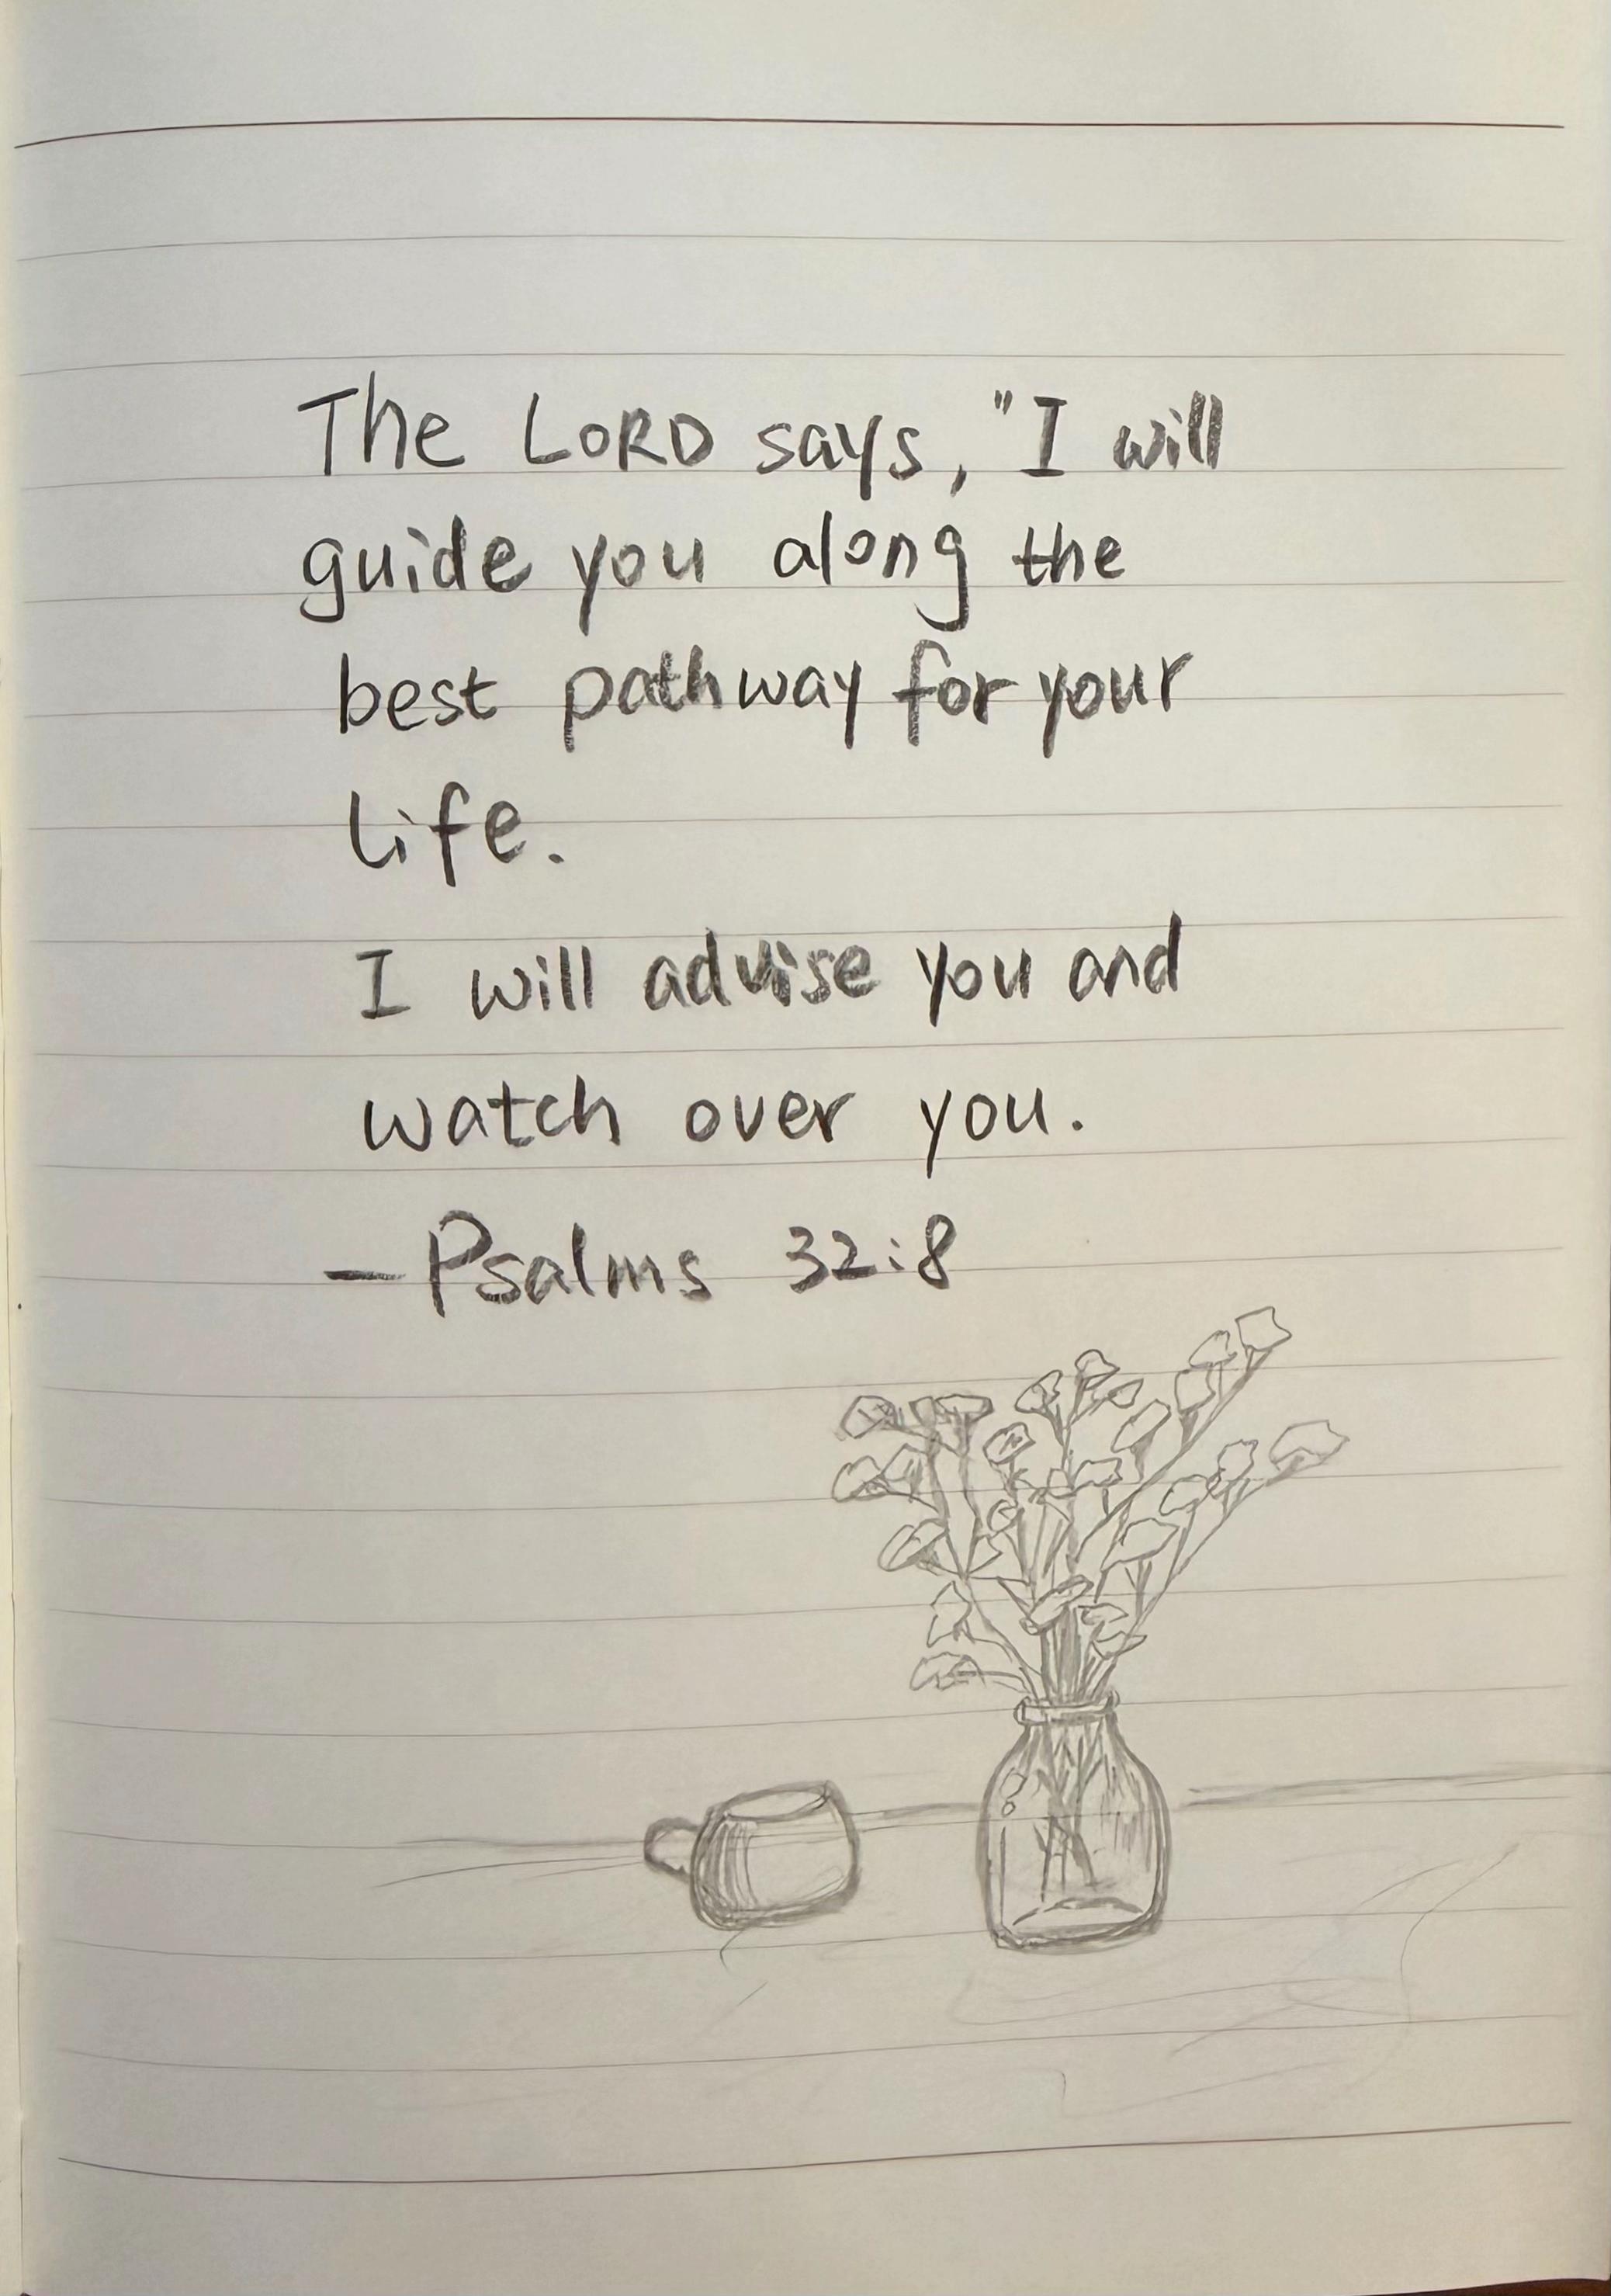 The LORD says, "I will
guide you along the
best pathway for your
life.
I will advise you and
watch over you.
—Psalms 32:8